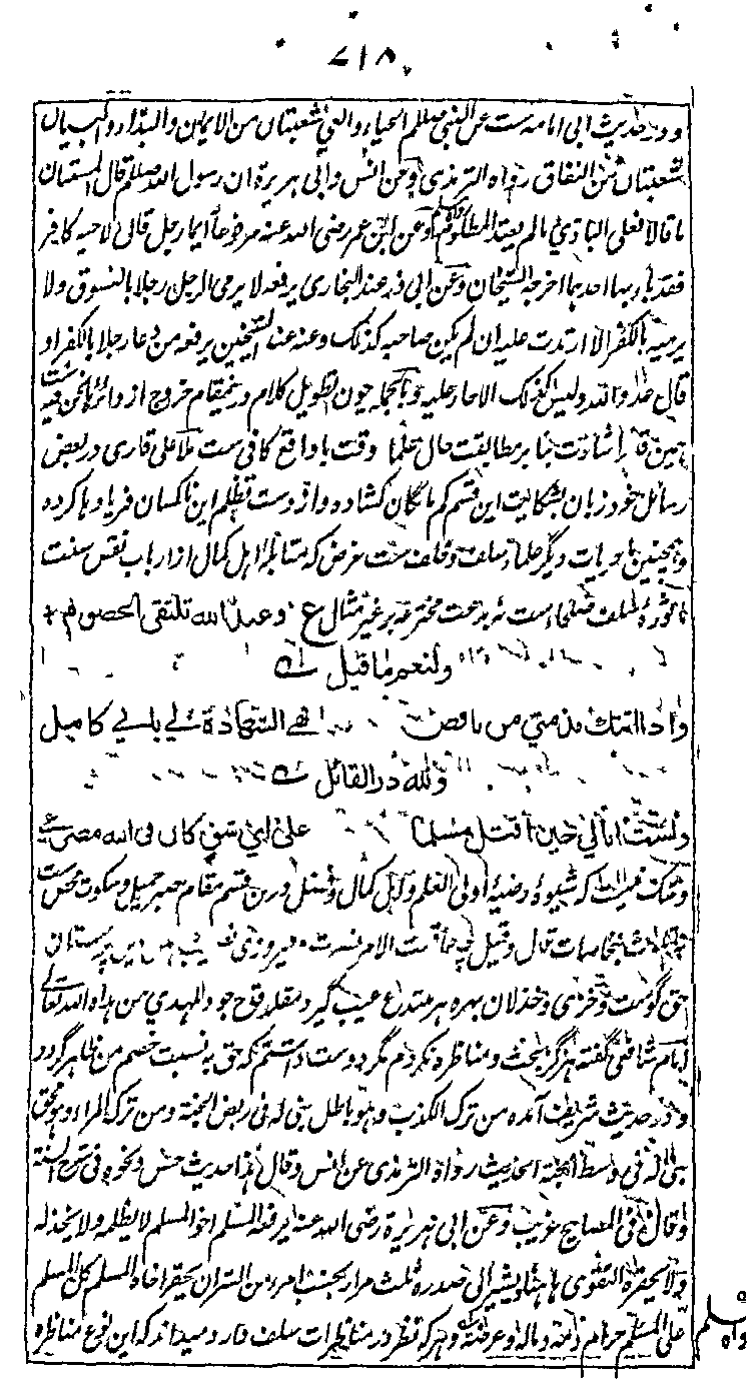 ۷۱۸
ودر حدیث ابی امامه ست عن النبی صللم الحیاء والعی شعبتان من الایمان والبذاء والبیان
شعبتان من النفاق رواه الترمذی وعن انس وابی هریرة ان رسول الله صللم قال المستبان
ما قالا فعلی البادی ما لم یعتد المظلوم وعن ابن عمر رضی الله عنه مرفوعاً ایما رجل قال لاخیه کافر
فقد باء بها احدهما اخرجه الشیخان وعن ابی ذر عند البخاری یرفعه لا یرمی الرجل رجلا بالفسوق ولا
یرمیه بالکفر الا ارتدت علیه ان لم یکن صاحبه کذلک وعنه عند الشیخین یرفعه من دعا رجلا بالکفر او
قال عدو الله ولیس کذلک الا حار علیه وبالجمله چون تطویل کلام درینمقام خروج از دائره مانحن فیه ست
همین قدر اشارت بنا بر مطابقت حال علما وقت با واقع کافی ست ملا علی قاری در بعض
رسائل خود زبان بشکایت این قسم کم مایگان کشاده واز دست تظلم این ناکسان فریادها کرده
وهمچنین ماجریات دیگر علماء سلف وخلف ست غرض که مقابله اهل کمال از ارباب نقص سنت
ماثوره سلف صلحاء است نه بدعت مخترعه بر غیر مثال ع وعند الله تلتقی الخصوم +
ولنعم ما قیل
واذا اتتک مذمتی من ناقص فهی الشهادة لی بانی کامل
ولله در القائل
ولست ابالی حین اقتل مسلما علی ای شق کان فی الله مصرعی
وشک نیست که شیوهٔ رضیهٔ اولی العلم واهل کمال وفضل درین قسم مقام صبر جمیل وسکوت محض ست
مخاصمات قال وقیل چه عاقبت الامر نصرت وفیروزی نصیب پرستان
حق گوست وخزی وخذلان بهره هر مبتدع عیب گیر مقلد وقح جو والمهدی من هداه الله تعالی
امام شافعی گفته هرگز بحث ومناظره نکردم مگر دوست داشتم که حق به نسبت خصم من ظاهر گردد
ودر حدیث شریف آمده من ترک الکذب وهو باطل بنی له فی ربض الجنة ومن ترک المراء وهو محق
بنی له فی وسط الجنة الحدیث رواه الترمذی عن انس وقال هذا حدیث حسن ونحوه فی شرح السنة
وقال فی المصابیح غریب وعن ابی هریرة رضی الله عنه یرفعه المسلم اخو المسلم لا یظلمه ولا یخذله
ولا یحقره التقوی هاهنا ویشیر الی صدره ثلث مرار بحسب امرء من الشر ان یحقر اخاه المسلم کل المسلم
علی المسلم حرام دمه وماله وعرضه وهر که نظر در مناظرات سلف دارد میداند که این نوع مناظره
رواه مسلم